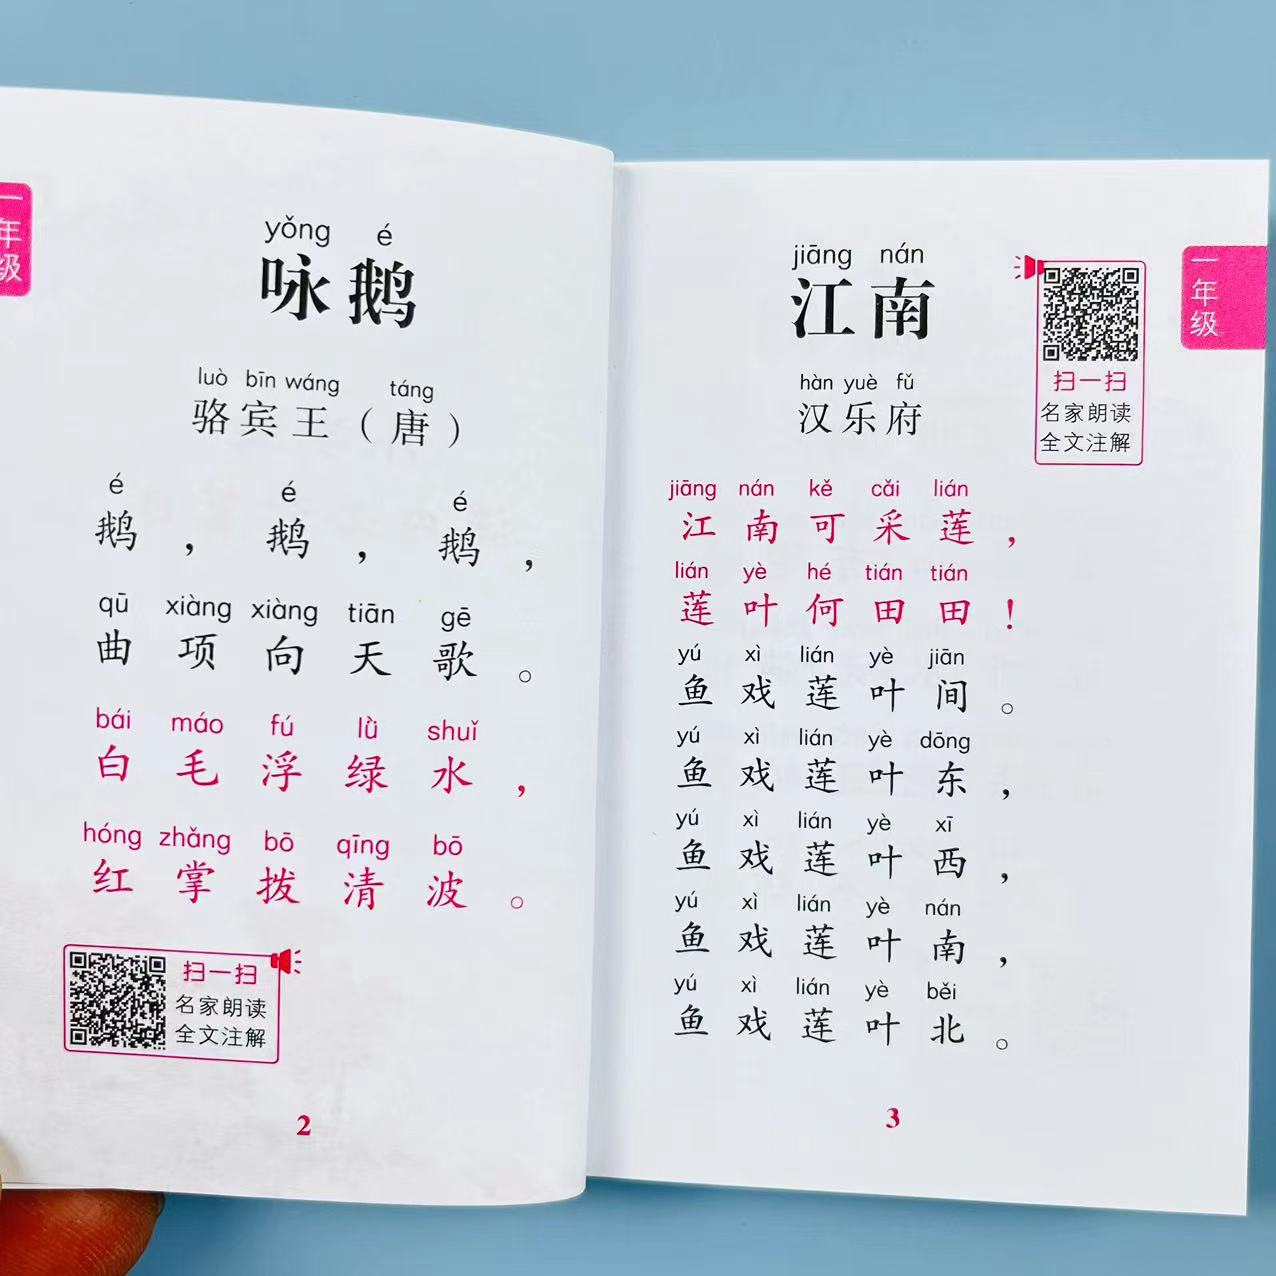 一年级
yǒng é
咏鹅
luò bīn wáng táng
骆宾王（唐）
é é é
鹅，鹅，鹅，
qū xiàng xiàng tiān gē
曲项向天歌。
bái máo fú lǜ shuǐ
白毛浮绿水，
hóng zhǎng bō qīng bō
红掌拨清波。
扫一扫
名家朗读
全文注解
2
一年级
jiāng nán
江南
hàn yuè fǔ
汉乐府
扫一扫
名家朗读
全文注解
jiāng nán kě cǎi lián
江南可采莲，
lián yè hé tián tián
莲叶何田田！
yú xì lián yè jiān
鱼戏莲叶间。
yú xì lián yè dōng
鱼戏莲叶东，
yú xì lián yè xī
鱼戏莲叶西，
yú xì lián yè nán
鱼戏莲叶南，
yú xì lián yè běi
鱼戏莲叶北。
3